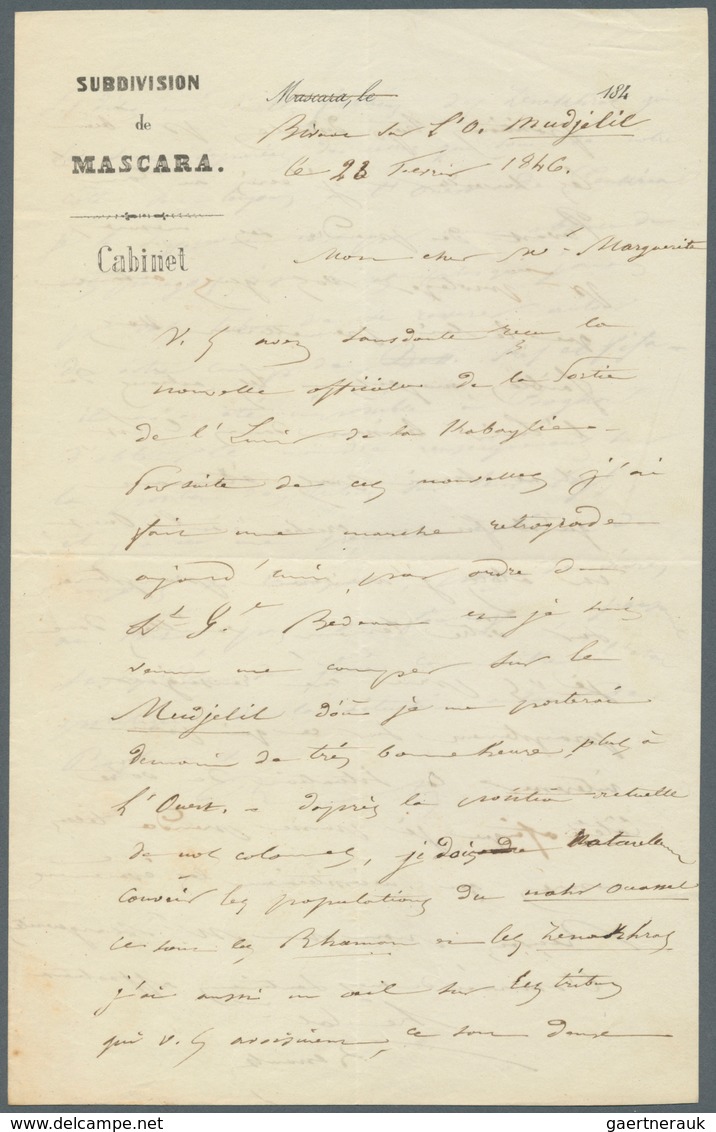 SUBDIVISION
de
MASCARA.
Cabinet
Mascara, le 184
Bivouac sur L'O. Mudjelil
le 23 Fevrier 1846.
Mon cher Mr Marguerite
V. s avez sans doute reçu la
nouvelle officielle de la Sortie
de l'Emir de la Kabaylie
Par suite de ces nouvelles j'ai
fait une marche retrograde
aujourd'hui par ordre du
Lt Gal Bedeau et je suis
venu me camper sur le
Mudjelil d'où je me porterai
demain de très bonne heure plus à
L'Ouest. - d'après la position actuelle
de nos colonnes, je dois
couvrir les populations du nahr ouassel
ce sont les Rhaman et les
j'ai aussi un œil sur les tribus
qui v. s avoisinent, ce sont donc
delcampe.net
gaertnerauk